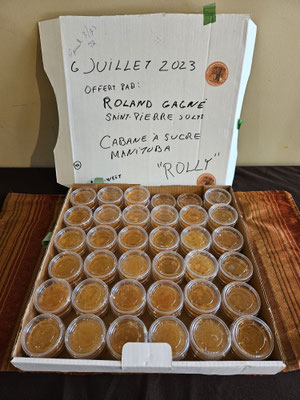 6 JUILLET 2023
OFFERT PAR:
ROLAND GAGNÉ
SAINT-PIERRE JOLYS
CABANE À SUCRE
MANITOBA
"ROLLY"